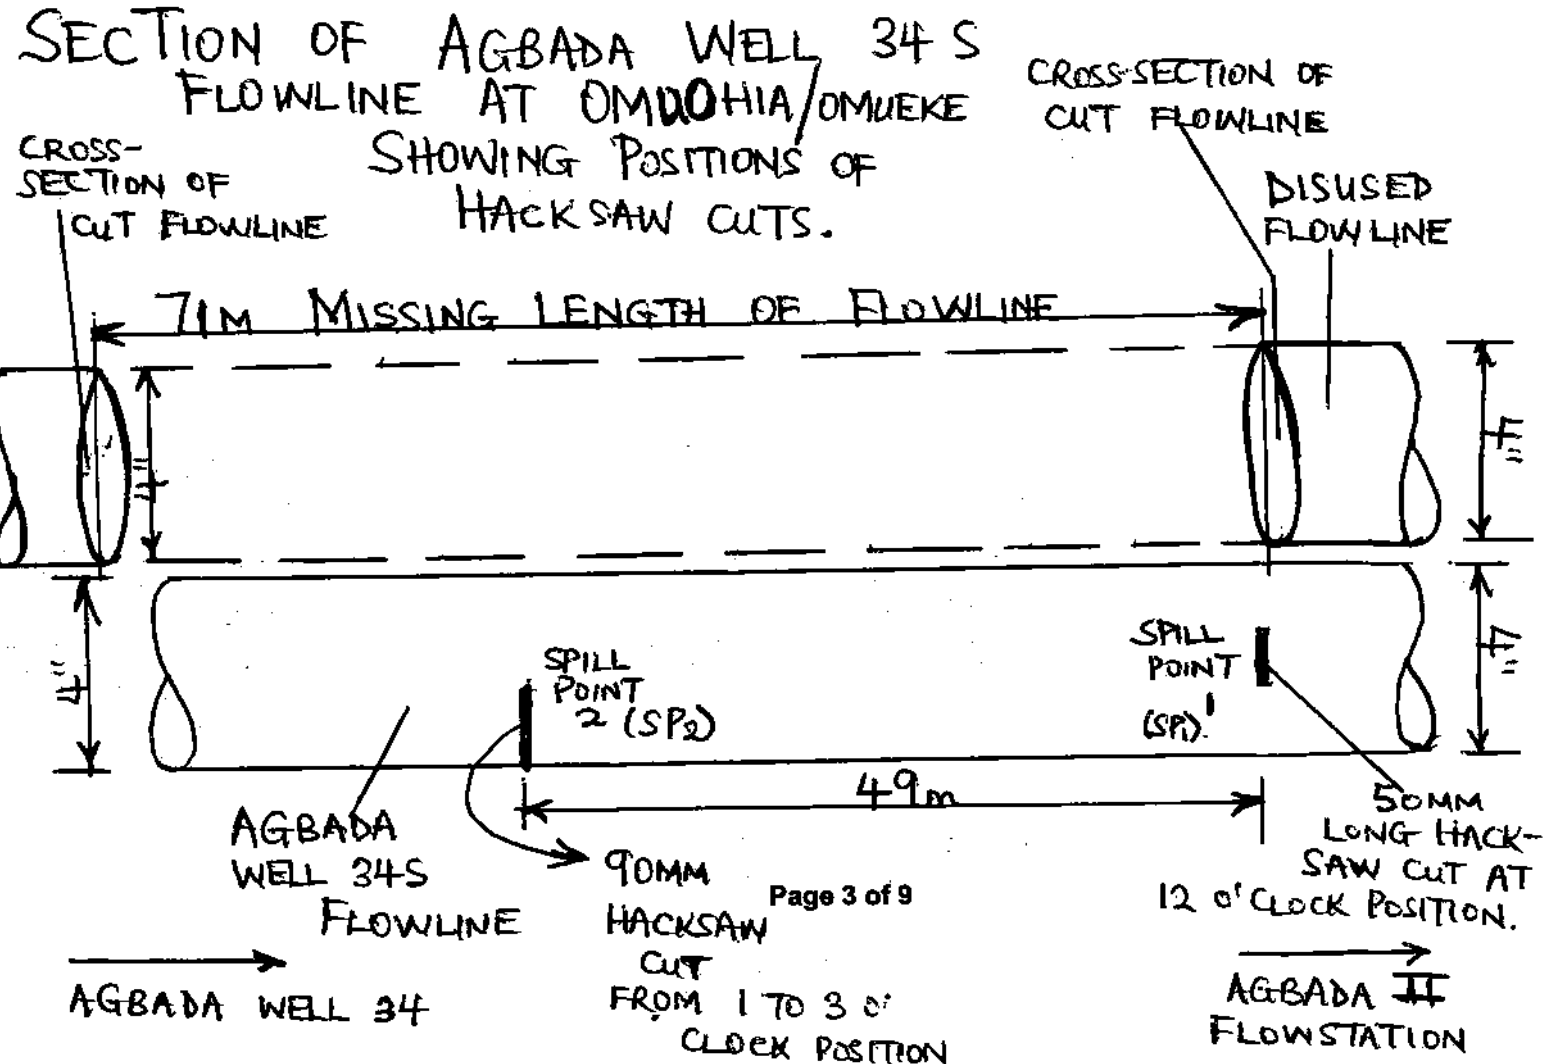 SECTION OF AGBADA WELL 34 S
FLOWLINE AT OMUOHIA/OMUEKE
SHOWING POSITIONS OF
HACKSAW CUTS.
CROSS-
SECTION OF
CUT FLOWLINE
CROSS-SECTION OF
CUT FLOWLINE
DISUSED
FLOWLINE
71M MISSING LENGTH OF FLOWLINE
4"
4"
4"
4"
SPILL
POINT
2 (SP2)
SPILL
POINT
1
(SP1).
49m
AGBADA
WELL 34S
FLOWLINE
90MM
HACKSAW
CUT
FROM 1 TO 3 O'
CLOCK POSITION
50MM
LONG HACK-
SAW CUT AT
12 O'CLOCK POSITION.
Page 3 of 9
AGBADA WELL 34
AGBADA II
FLOWSTATION